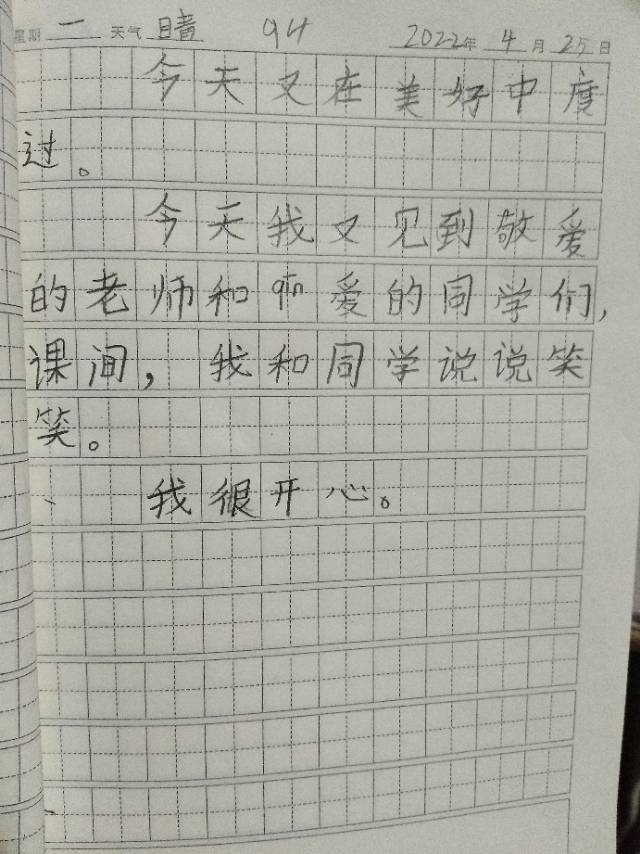 星期 一 天气 晴 94 2022年 4月 25日
今天又在美好中度
过。
今天我又见到敬爱
的老师和 爱的同学们,
课间,我和同学说说笑
笑。
我很开心。